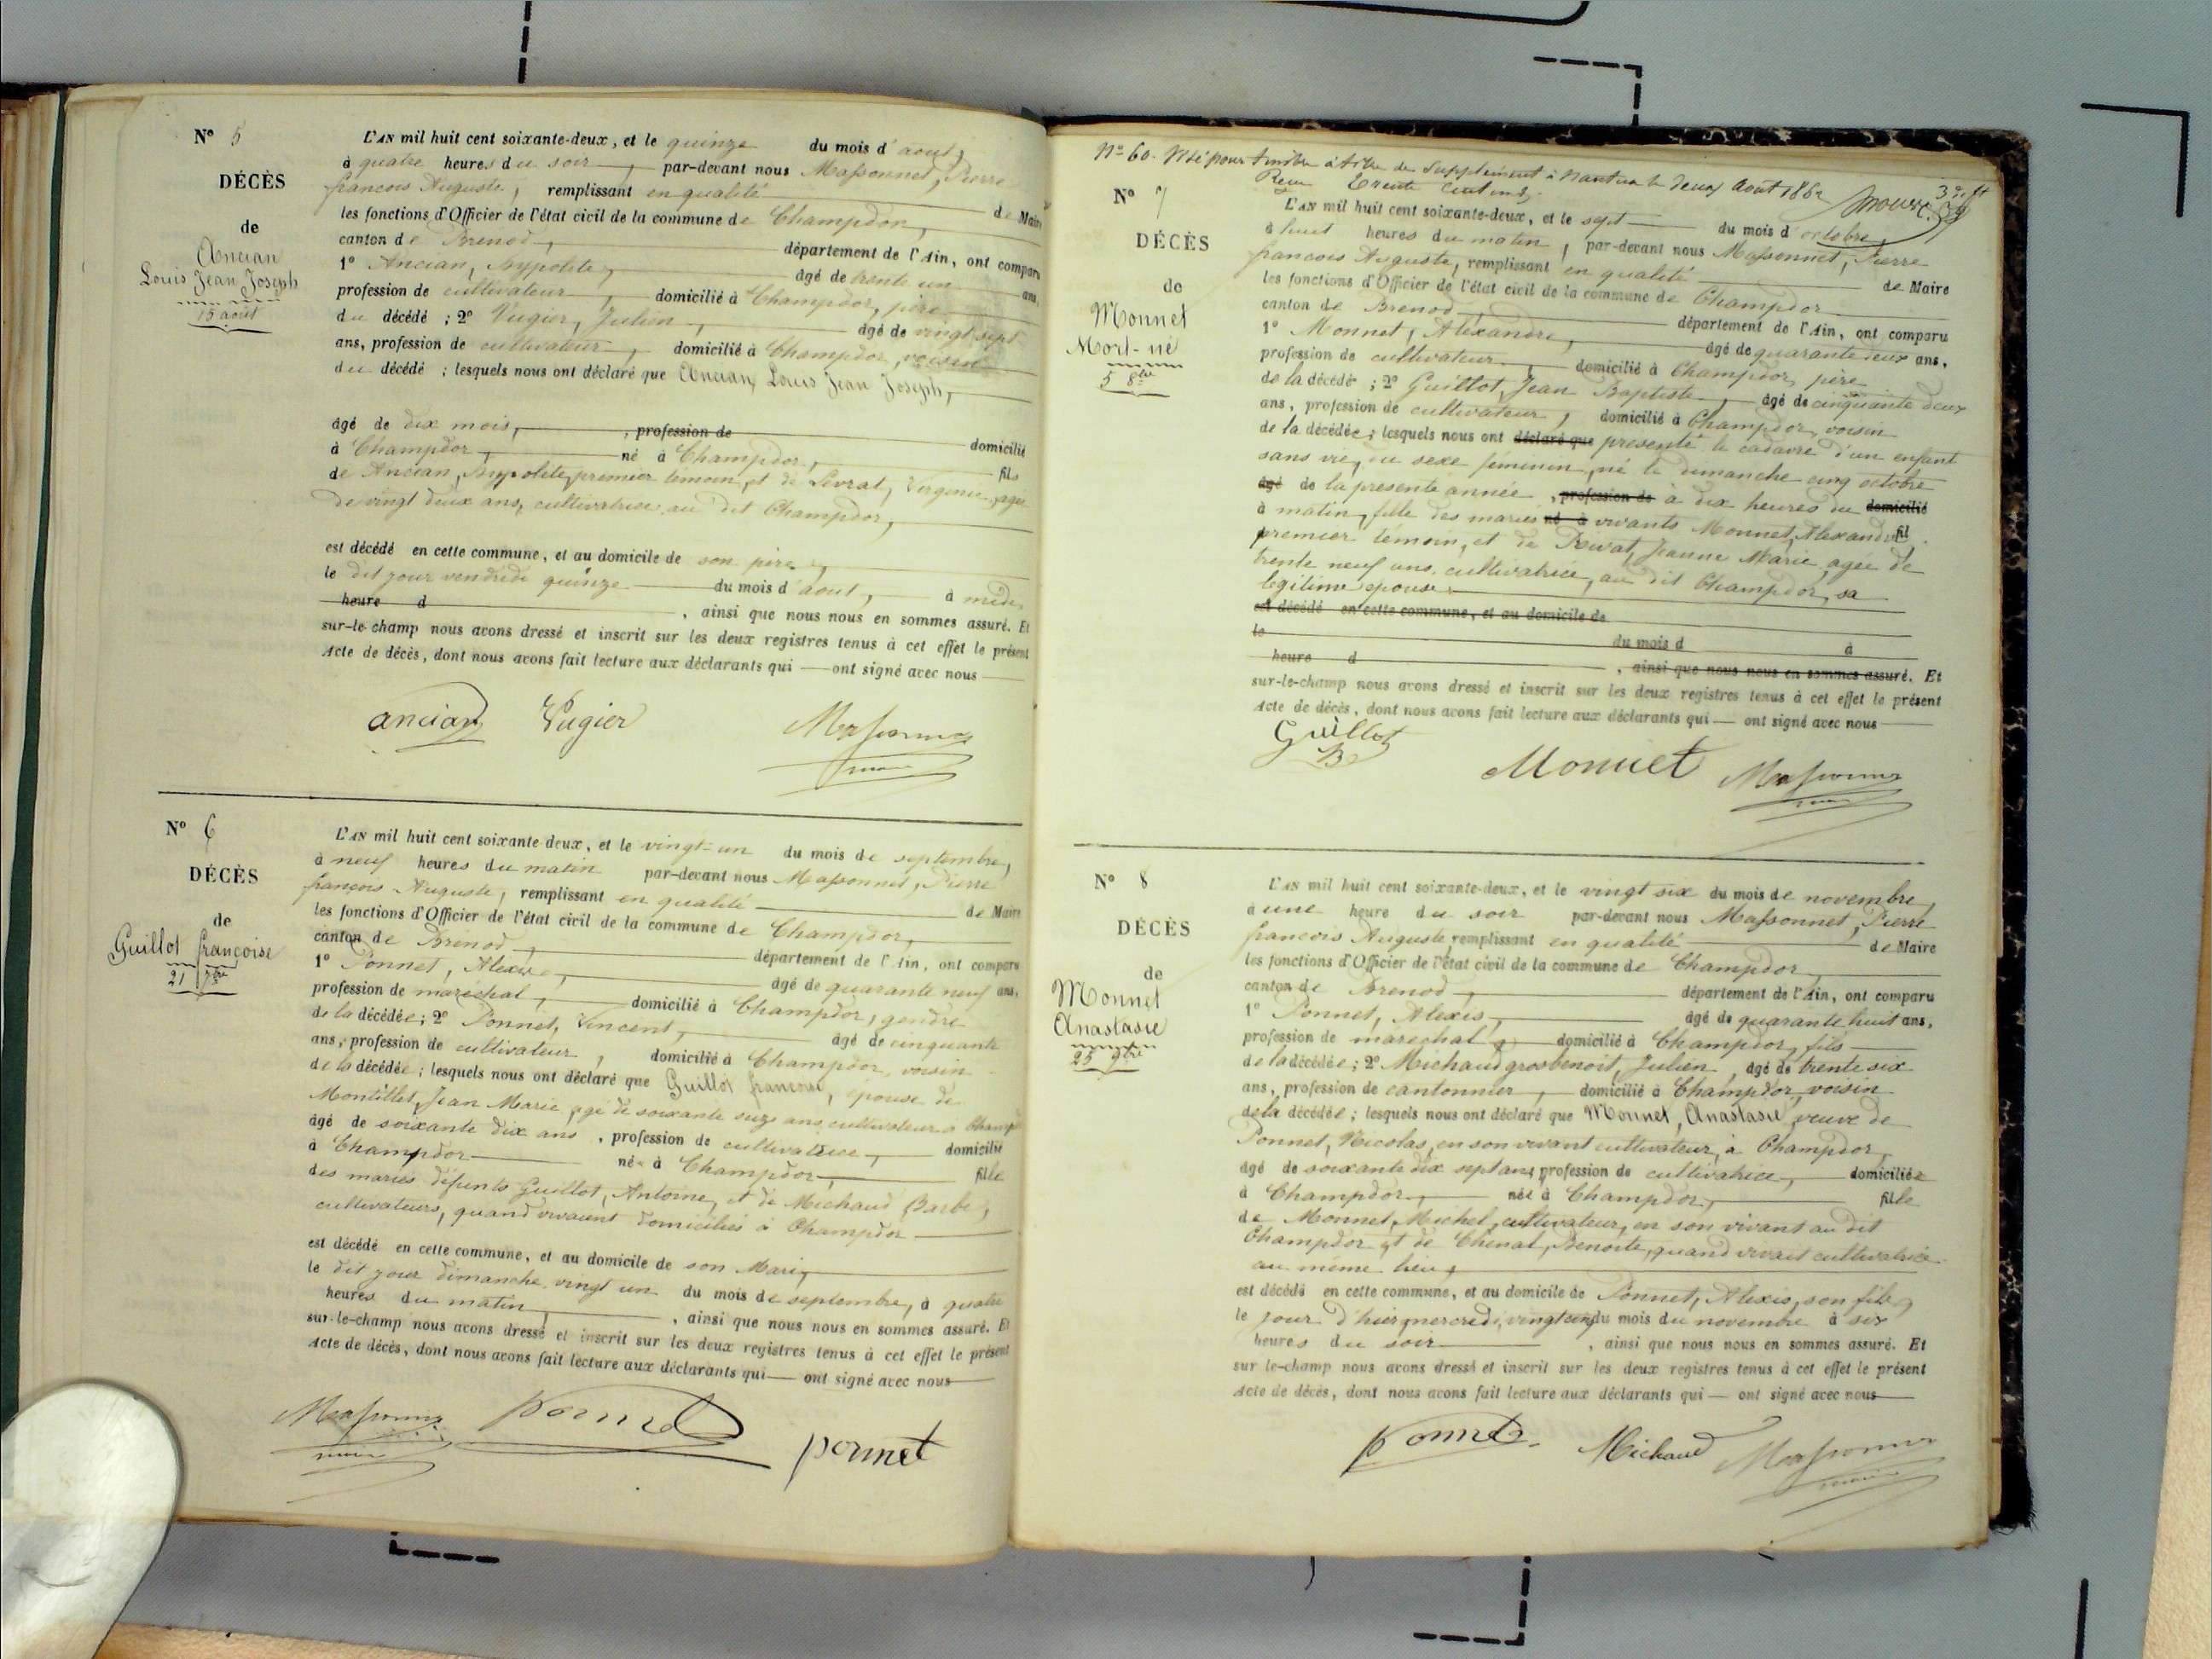 N° 5
DÉCÈS
de
Ancian
Louis Jean Joseph
15 août
L'AN mil huit cent soixante-deux, et le quinze du mois d'aout,
à quatre heures du soir, par-devant nous Massonnet, Pierre
françois Auguste, remplissant en qualité de Maire
les fonctions d'Officier de l'état civil de la commune de Champdor,
canton de Brenod, département de l'Ain, ont comparu
1° Ancian, hypolite, âgé de trente un ans,
profession de cultivateur, domicilié à Champdor, père
du décédé ; 2° Vugier, Julien, âgé de vingt sept
ans, profession de cultivateur, domicilié à Champdor, voisin
du décédé ; lesquels nous ont déclaré que Ancian, Louis Jean Joseph,
âgé de dix mois, profession de domicilié
à Champdor, né à Champdor, fils
de Ancian, hypolite, premier témoin, et de Levrat, Virginie, agée
de vingt deux ans, cultivatrice au dit Champdor,
est décédé en cette commune, et au domicile de son père,
le dit jour vendredi quinze du mois d'aout, à midi,
heure d , ainsi que nous nous en sommes assuré. Et
sur-le-champ nous avons dressé et inscrit sur les deux registres tenus à cet effet le présent
Acte de décès, dont nous avons fait lecture aux déclarants qui — ont signé avec nous
ancian Vugier Massonnet
maire
N° 6
DÉCÈS
de
Guillot françoise
21 7bre
L'AN mil huit cent soixante-deux, et le vingt-un du mois de septembre,
à neuf heures du matin par-devant nous Massonnet, Pierre
françois Auguste, remplissant en qualité de Maire
les fonctions d'Officier de l'état civil de la commune de Champdor,
canton de Brénod, département de l'Ain, ont comparu
1° Ponnet, Alexis, âgé de quarante neuf ans,
profession de maréchal, domicilié à Champdor, gendre
de la décédée ; 2° Ponnet, Vincent, âgé de cinquante
ans, profession de cultivateur, domicilié à Champdor, voisin
de la décédée ; lesquels nous ont déclaré que Guillot francoise, épouse de
Montillet, Jean Marie, agé de soixante seize ans, cultivateur à Champd
âgé de soixante dix ans, profession de cultivatrice, domicilié
à Champdor née à Champdor, fille
des mariés défunts Guillot, Antoine, et de Michaud Barbe,
cultivateurs, quand vivaient domiciliés à Champdor
est décédé en cette commune, et au domicile de son Mari,
le dit jour dimanche vingt un du mois de septembre, à quatre
heures du matin, ainsi que nous nous en sommes assuré. Et
sur-le-champ nous avons dressé et inscrit sur les deux registres tenus à cet effet le présent
Acte de décès, dont nous avons fait lecture aux déclarants qui — ont signé avec nous
Massonnet ponnet ponnet
maire
N° 60. Visé pour timbre à titre de supplément à Nantua le deux Août 1862
Reçu trente centimes.
N° 7
DÉCÈS
de
Monnet
Mort-né
5 8bre
L'AN mil huit cent soixante-deux, et le sept du mois d'octobre,
à huit heures du matin, par-devant nous Massonnet, Pierre
francois Auguste, remplissant en qualité de Maire
les fonctions d'Officier de l'état civil de la commune de Champdor
canton de Brenod département de l'Ain, ont comparu
1° Monnet, Alexandre, âgé de quarante deux ans,
profession de cultivateur, domicilié à Champdor, père
de la décédé ; 2° Guillot, Jean Baptiste, âgé de cinquante deux
ans, profession de cultivateur, domicilié à Champdor, voisin
de la décédée ; lesquels nous ont déclaré que presenté le cadavre d'un enfant
sans vie, du sexe féminin, né le dimanche cinq octobre
âgé de la presente année, profession de à dix heures du domicilié
à matin, fille des mariés né à vivants Monnet, Alexandre fil
premier témoin, et de Rivat, Jeanne Marie, agée de
trente neuf ans, cultivatrice, au dit Champdor, sa
legitime epouse.
est décédé en cette commune, et au domicile de
le du mois d à
heure d , ainsi que nous nous en sommes assuré. Et
sur-le-champ nous avons dressé et inscrit sur les deux registres tenus à cet effet le présent
Acte de décès, dont nous avons fait lecture aux déclarants qui — ont signé avec nous
Guillot
B
Monnet Massonnet
maire
N° 8
DÉCÈS
de
Monnet
Anastasie
25 9bre
L'AN mil huit cent soixante-deux, et le vingt six du mois de novembre,
à une heure du soir par-devant nous Massonnet, Pierre
francois Auguste, remplissant en qualité de Maire
les fonctions d'Officier de l'état civil de la commune de Champdor,
canton de Brenod, département de l'Ain, ont comparu
1° Ponnet, Alexis, âgé de quarante huit ans,
profession de maréchal, domicilié à Champdor, fils
de la décédée ; 2° Michaud grosbenoit, Julien, âgé de trente six
ans, profession de cantonnier, domicilié à Champdor, voisin
de la décédée ; lesquels nous ont déclaré que Monnet, Anastasie, veuve de
Ponnet, Nicolas, en son vivant cultivateur, à Champdor,
âgé de soixante dix sept ans, profession de cultivatrice, domiciliée
à Champdor, née à Champdor, fille
de Monnet, Michel, cultivateur, en son vivant au dit
Champdor, et de Chenal, Benoite, quand vivait cultivatrice
au même lieu,
est décédé en cette commune, et au domicile de Ponnet, Alexis, son fils,
le jour d'hier, mercredi, vingt cinq du mois du novembre à six
heures du soir, ainsi que nous nous en sommes assuré. Et
sur le-champ nous avons dressé et inscrit sur les deux registres tenus à cet effet le présent
Acte de décès, dont nous avons fait lecture aux déclarants qui — ont signé avec nous
ponnet Michaud Massonnet
maire